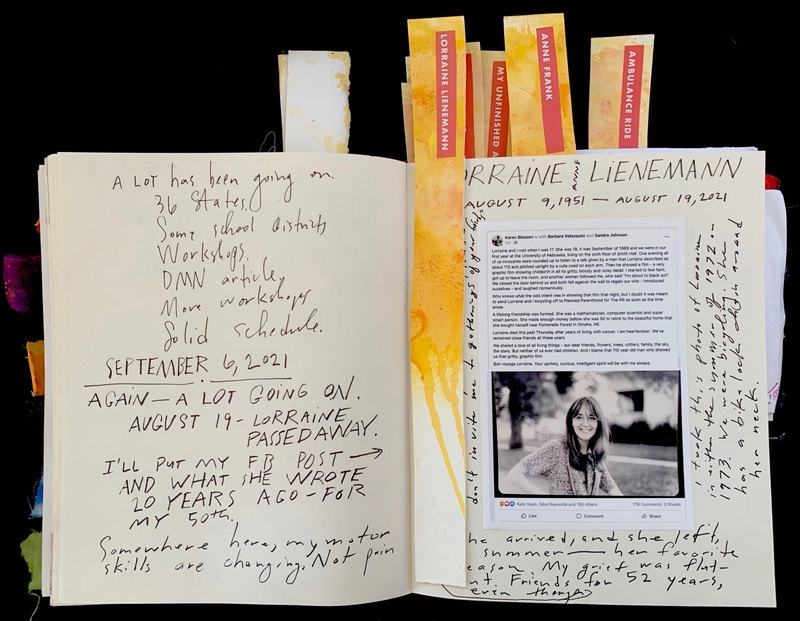 A LOT has been going on.
36 States.
Some school districts
Workshops.
DMN article,
More workshops
Solid schedule.
SEPTEMBER 6, 2021
AGAIN — A LOT GOING ON.
AUGUST 19 - LORRAINE
PASSED AWAY.
I'LL PUT MY FB POST →
AND WHAT SHE WROTE
20 YEARS AGO - FOR
MY 50th.
Somewhere here, my motor
skills are changing. Not pain
LORRAINE LIENEMANN
MY UNFINISHED A
ANNE FRANK
AMBULANCE RIDE
ORRAINE ANNE LIENEMANN
AUGUST 9, 1951 — AUGUST 19, 2021
Karen Blessen is with Barbara Velazquez and Sandra Johnson
Lorraine and I met when I was 17. She was 18. It was September of 1969 and we were in our
first year at the University of Nebraska, living on the sixth floor of Smith Hall. One evening all
of us innocents were rounded up to listen to a talk given by a man that Lorraine described as
about 110 and pitched upright by a cute coed on each arm. Then he showed a film - a very
graphic film showing childbirth in all its gritty, bloody and noisy detail. I started to feel faint,
got up to leave the room, and another woman followed me, who said "I'm about to black out".
We closed the door behind us and both fell against the wall to regain our wits - introduced
ourselves - and laughed riproariously.
Who knows what the odd intent was in showing that film that night, but I doubt it was meant
to send Lorraine and I bicycling off to Planned Parenthood for The Pill as soon as the time
arose.
A lifelong friendship was formed. She was a mathematician, computer scientist and super
smart person. She made enough money before she was 50 to retire to the beautiful home that
she bought herself near Fontenelle Forest in Omaha, NE.
Lorraine died this past Thursday after years of living with cancer. I am heartbroken. We've
remained close friends all these years.
We shared a love of all living things - our dear friends, flowers, trees, critters, family, the sky,
the stars. But neither of us ever had children. And I blame that 110 year old man who showed
us that gritty, graphic film.
Bon voyage Lorraine. Your spritely, curious, intelligent spirit will be with me always.
Kelly Nash, Sibyl Reynolds and 155 others
179 Comments 3 Shares
Like
Comment
Share
I took this photo of Lorraine
in either the summer of 1972 or
1973. We were bicycling. She
has a bike lock chain around
her neck.
he arrived, and she left,
summer — her favorite
eason. My grief was flat-
nt. Friends for 52 years,
even though